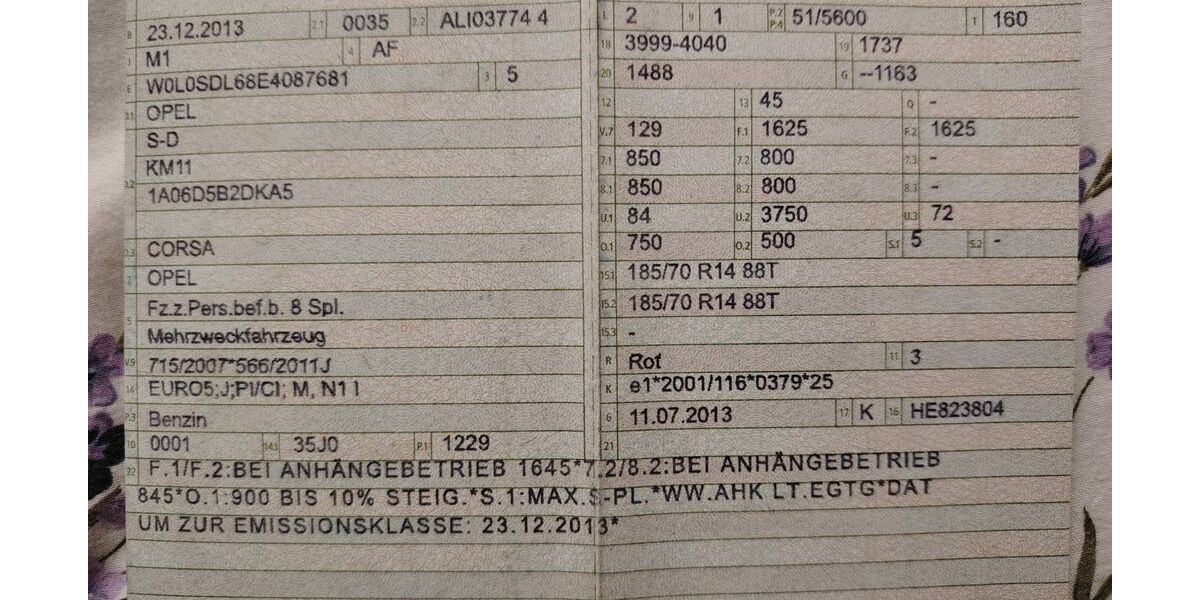 B 23.12.2013 2.1 0035 2.2 ALI03774 4
J M1 4 AF
E W0L0SDL68E4087681 3 5
D.1 OPEL
S-D
KM11
D.2 1A06D5B2DKA5
D.3 CORSA
2 OPEL
Fz.z.Pers.bef.b. 8 Spl.
5 Mehrzweckfahrzeug
V.9 715/2007*566/2011J
14 EURO5;J;PI/CI; M, N1 I
P.3 Benzin
10 0001 14.1 35J0 P.1 1229
L 2 9 1 P.2 P.4 51/5600 T 160
18 3999-4040 19 1737
20 1488 G --1163
12 13 45 Q -
V.7 129 F.1 1625 F.2 1625
7.1 850 7.2 800 7.3 -
8.1 850 8.2 800 8.3 -
U.1 84 U.2 3750 U.3 72
O.1 750 O.2 500 S.1 5 S.2 -
15.1 185/70 R14 88T
15.2 185/70 R14 88T
15.3 -
R Rot 11 3
K e1*2001/116*0379*25
6 11.07.2013 17 K 16 HE823804
21
22 F.1/F.2:BEI ANHÄNGEBETRIEB 1645*7.2/8.2:BEI ANHÄNGEBETRIEB
845*O.1:900 BIS 10% STEIG.*S.1:MAX.S-PL.*WW.AHK LT.EGTG*DAT
UM ZUR EMISSIONSKLASSE: 23.12.2013*